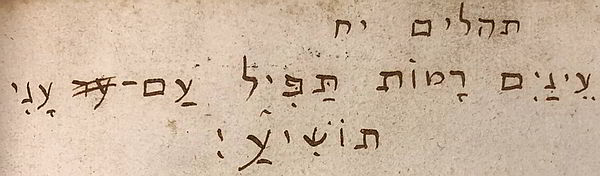 תהלים יח
עֵינַיִם רָמוֹת תַּפִּיל עַם־ עָנִי
תוֹשִׁיעַ׃